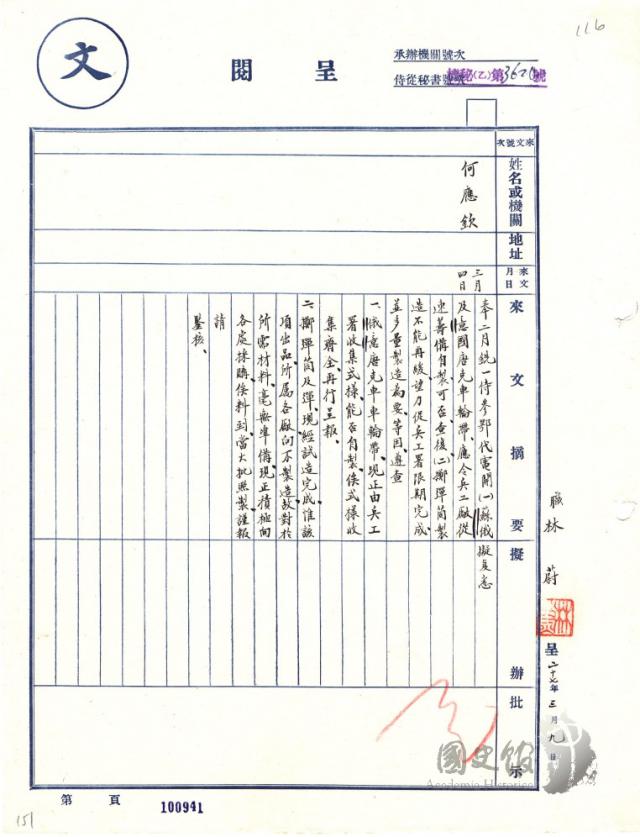 116
文
呈閱
承辦機關號次
侍從秘書號次
機秘(乙)第3620號
來文號次
姓名或機關
地址
來文
月日
來文摘要
擬辦
批示
何應欽
三月
四日
奉二月銑一侍參鄂代電開(一)蘇俄
及意國唐克車輪帶、應令兵工廠從
速籌備自製、可否、查復(二)擲彈筒製
造不能再緩、望力促兵工署限期完成、
並多量製造為要、等因、遵查
一、俄意唐克車車輪帶、現正由兵工
署收集式樣、能否自製、俟式樣收
集齊全、再行呈報、
二、擲彈筒及彈、現經試造完成、惟該
項出品、所屬各廠向不製造、故對於
所需材料、毫無準備、現正積極向
各處採購、俟料到、當大批照製、謹報
請
鑒核、
擬复悉
職林蔚
呈二十七年三月九日
國史館
Academia Historica
第 頁
100941
151